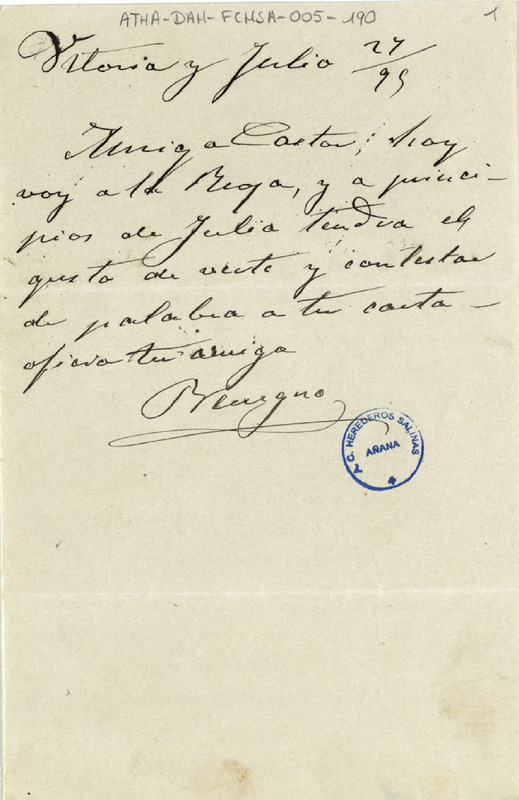 ATHA-DAH-FCHSA-005-190
1
Vitoria y Julio 27/95
Amigo Castor; hoy
voy a la Rioja, y a princi-
pios de Julio tendré el
gusto de verte y contestar
de palabra a tu carta-
oficio tu amigo
Benigno
C. HEREDEROS SALINAS
AÑANA